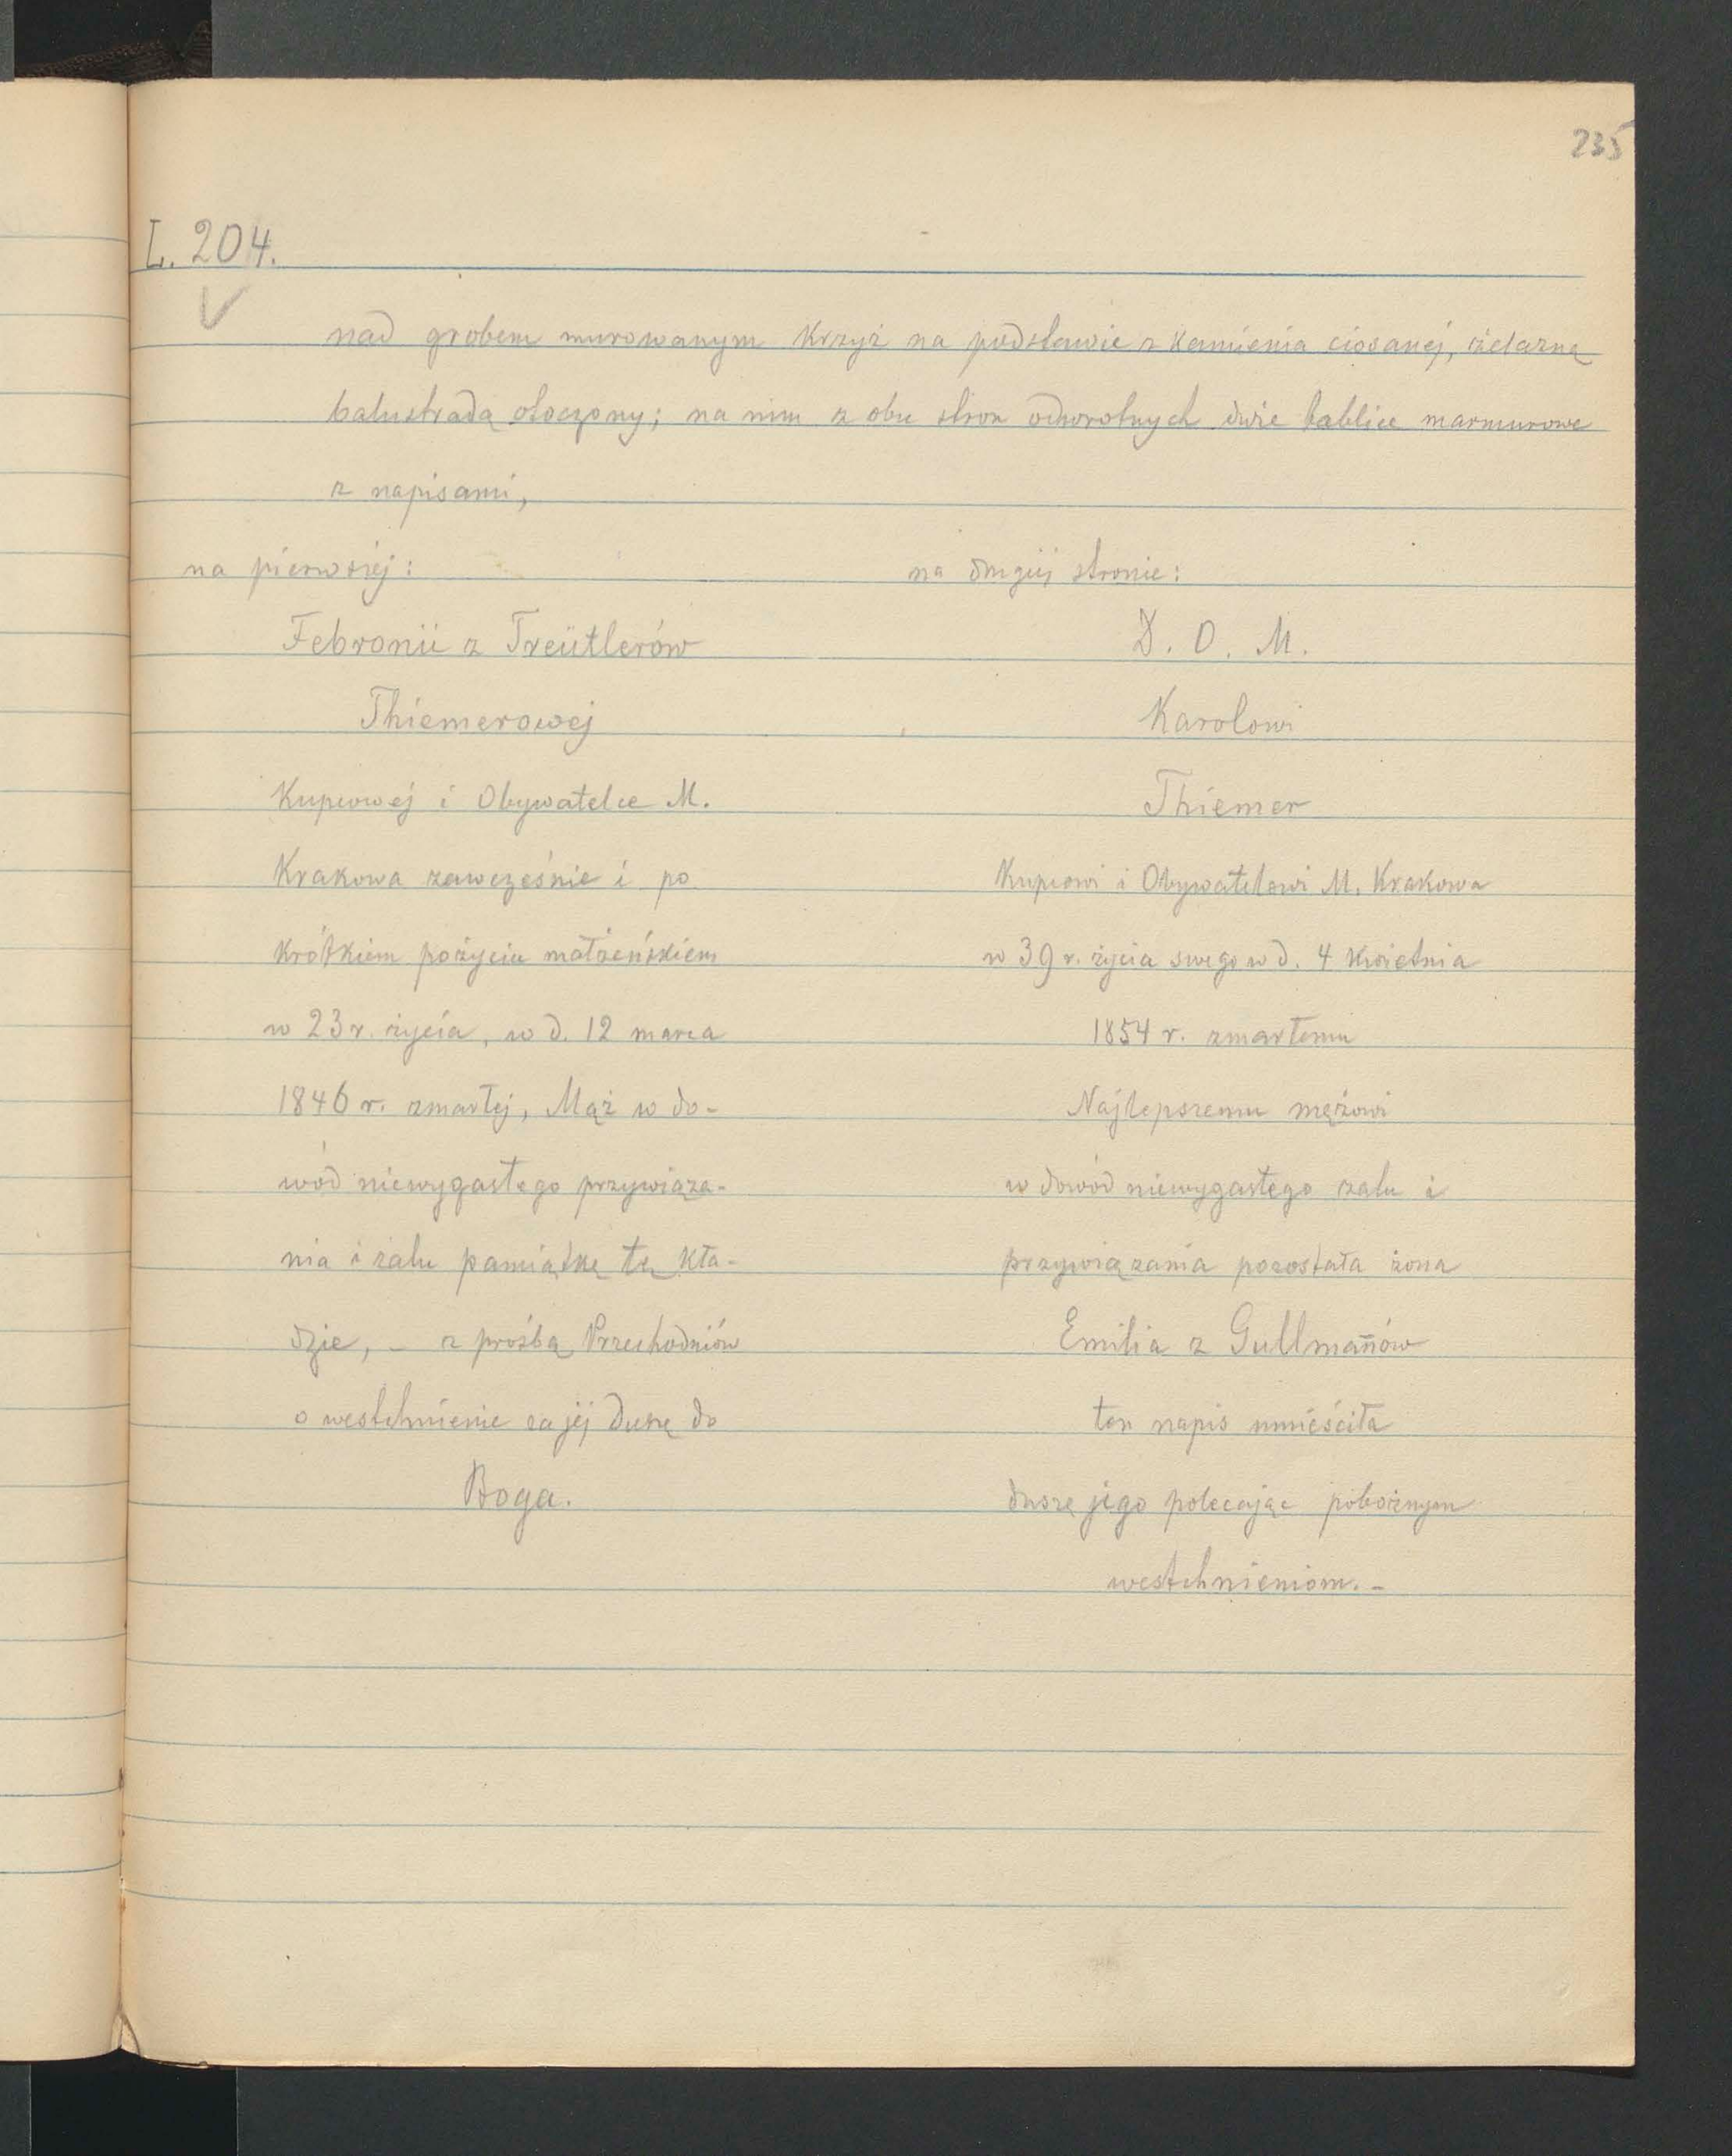 235
L. 204.
nad grobem murowanym krzyż na podstawie z kamienia ciosanéj, żelazną
balustradą otoczony; na nim z obu stron odwrotnych dwie tablice marmurowe
z napisami,
na pierwszéj:
Febronii z Treütlerów
Thiemerowej
Kupcowéj i Obywatelce M.
Krakowa zawcześnie i po
krótkiem pożyciu małżeńskiem
w 23 r. życia, w d. 12 marca
1846 r. zmarłej, Mąż w do-
wód niewygasłego przywiąza-
nia i żalu pamiątkę tę kła-
dzie, – z prośbą Przechodniów
o westchnienie za jéj duszę do
Boga.
na drugiéj stronie:
D. O. M.
Karolowi
Thiemer
Kupcowi i Obywatelowi M. Krakowa
w 39 r. życia swego w d. 4 kwietnia
1854 r. zmarłemu
Najlepszemu mężowi
w dowód niewygasłego żalu i
przywiązania pozostała żona
Emilia z Gullman̄ów
ten napis umieściła
duszę jego polecając pobożnym
westchnieniom. –